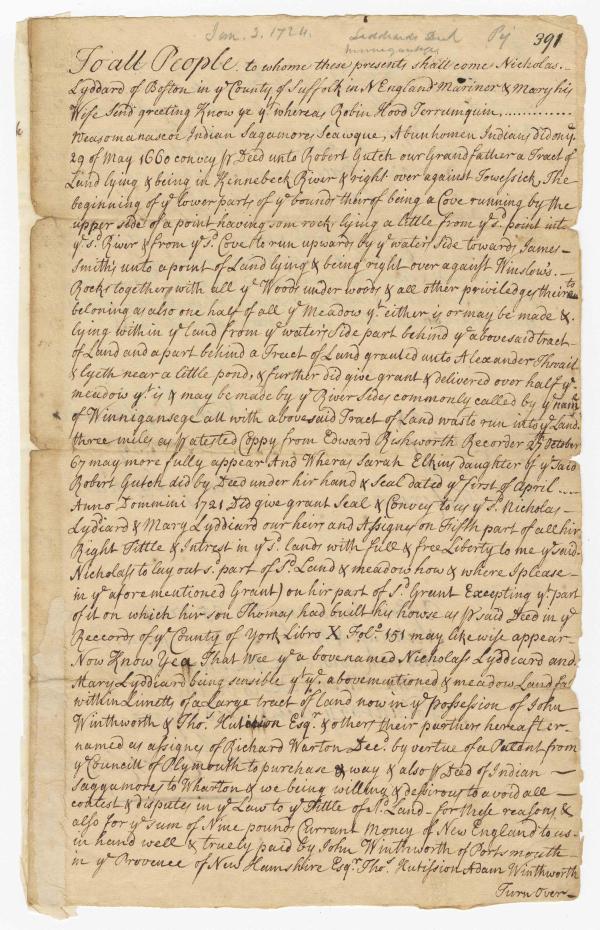 Jan. 3. 1724. Liddiards Deed Pej 391
Winnegansege
To all People to whome these presents shall come Nicholas
Lyddard of Boston in yͤ County of Suffolk in N England Mariner & Mary his
Wife Send greeting Know ye yͭ whereas Robin Hood Terrumquin,............
Weasomanascoe Indian Sagamores Scawque, Abunhomen Indians Did on yͤ
29 of May 1660 convey pr Deed unto Robert Gutch our Grandfather a Tract of
Land lying & being in Kinnebeck River & right over against Towessick, The
beginning of yͤ lower parts of yͤ bounds thirof being a Cove running by the
upper side of a point having som rock lying a little from yͤ sd. point into
yͤ sd. River & from yͤ sd. Cove to run upwards by yͤ water Side towards James
Smiths unto a point of Land lying & being right over against Winslow's.
Rocks together with all yͤ Woods under woods & all other priviledges their to
beloning as also one half of all yͤ Meadow yͭ either is or may be made &
lying within yͤ land from yͤ water side part behind yͤ abovesaid tract
of Land and a part behind a Tract of Land granted unto Alexander Thwait
& lyeth near a little pond, & further did give grant & delivered over half yͤ
meadow yͭ is & may be made by yͤ River sides commonly called by yͤ name
of Winnigansege all with abovesaid Tract of Land was to run into yͤ Land
three miles as pr atested Coppy from Edward Rishworth Recorder 27th October
67 may more fully appear And Wheras Sarah Elkins daughter of yͤ said
Robert Gutch did by Deed under his hand & Seal dated yͤ first of April ....
Anno Dommini 1721 Did give grant Seal & Convey to us yͤ sd. Nicholas
Lydiard & Mary Lyddiard our heirs and Assignes on Fifth part of all hir
Right Tittle & Intrest in yͤ sd. lands with full & free Liberty to me yͤ said
Nicholass to lay out sd. part of sd. Land & meadow how & where I please
in yͤ afore mentioned Grant) on hir part of sd. Grant Excepting yͭ part
of it on which hir son Thomas had built his howse as pr said Deed in yͤ
Reccords of yͤ County of York Libro X Folo. 151 may like wise appear
Now Know Yea That Wee yͤ abovenamed Nicholass Lyddiard and
Mary Lyddiard being sensible yͭ yͤ abovementioned & meadow Land fal
within Limetts of a Large tract of land now in yͤ Possession of John
Winthworth & Thos. Hutision Esqr. & others their partners hereafter
named as assignes of Richard Warton Decd. by vertue of a Patent from
yͤ Councill of Plymouth to purchase & way & also pr Deed of Indian
Saggumores to Wharton & we being willing & dessirous to avoid all
contest & disputes in yͤ Law to yͤ Tittle of sd. Land for these reasons &
also for yͤ sum of Nine pounds Currant Money of New England to us
in hand well & truely paid by John Winthworth of Portsmouth
in yͤ Provence of New Hamshire Esqr. Thos. Hutission Adam Winthworth
Turn Over